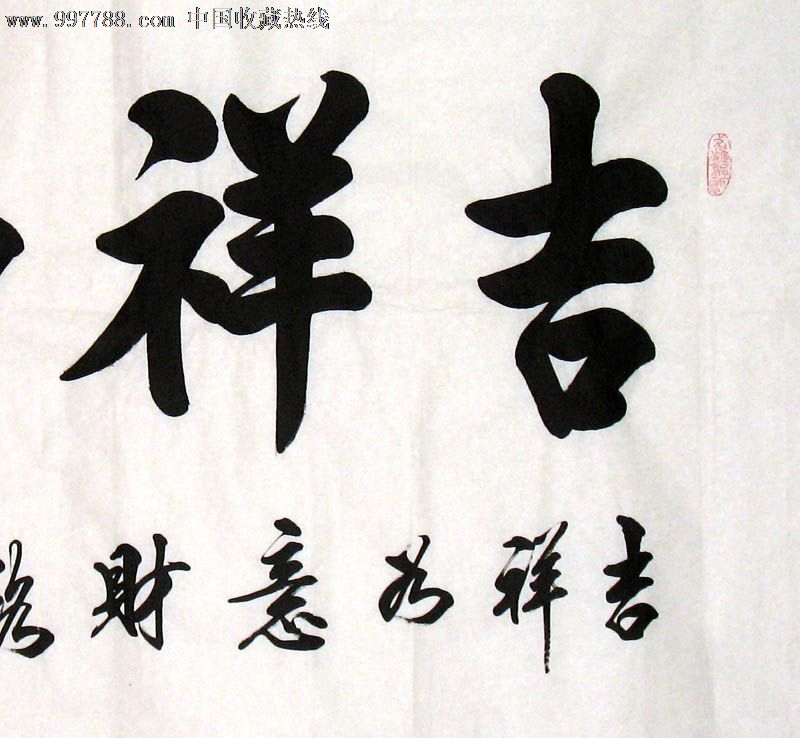 www.997788.com 中国收藏热线
吉祥
吉祥如意財路